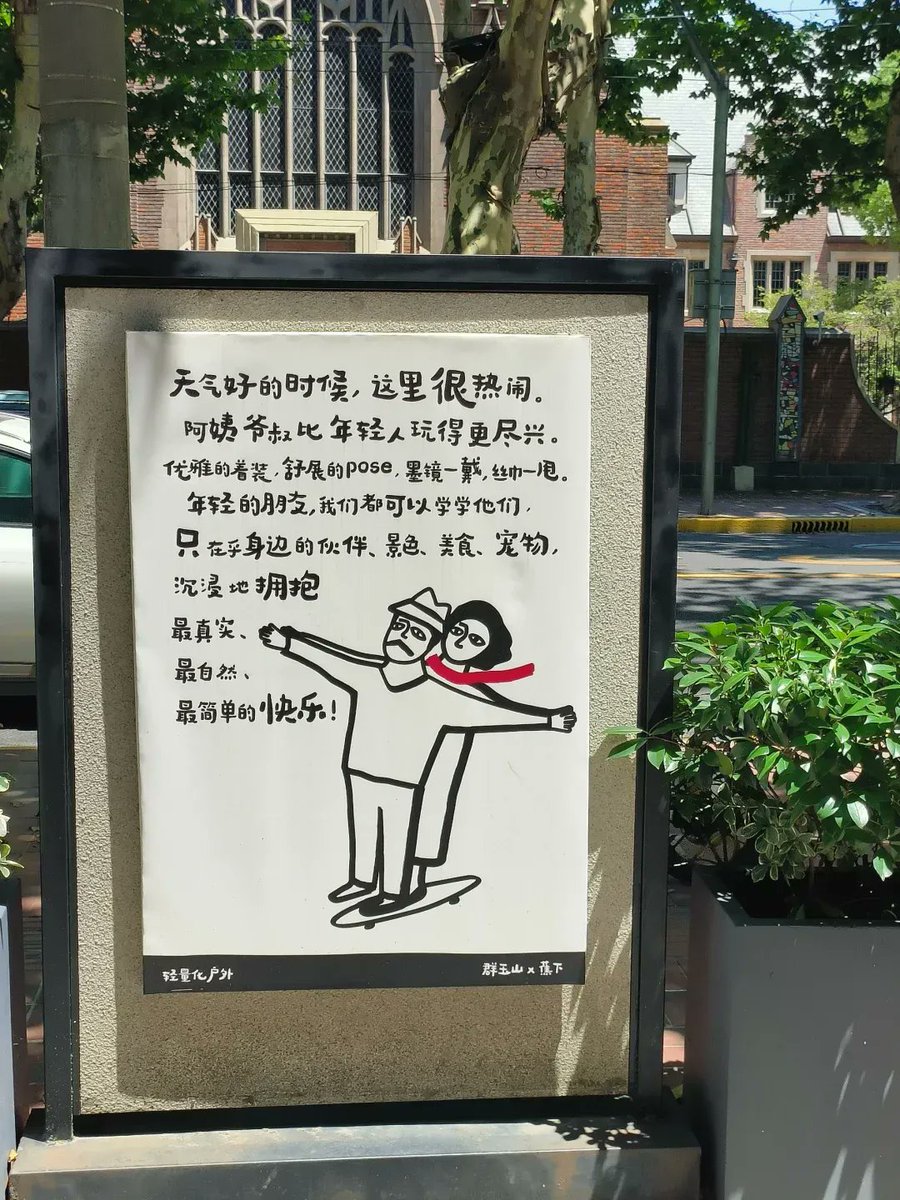 天气好的时候，这里很热闹。
阿姨爷叔比年轻人玩得更尽兴。
优雅的着装，舒展的pose，墨镜一戴，丝巾一甩。
年轻的朋友，我们都可以学学他们，
只在乎身边的伙伴、景色、美食、宠物，
沉浸地拥抱
最真实、
最自然、
最简单的快乐！
轻量化户外
群玉山 x 蕉下